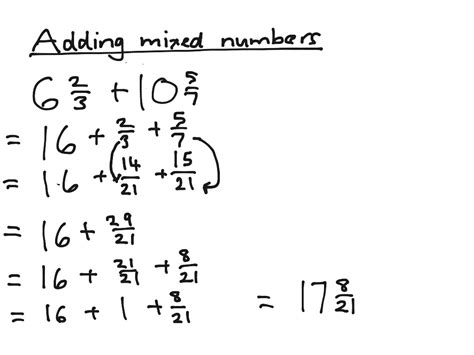 Adding mixed numbers
6 2/3 + 10 5/7
= 16 + 2/3 + 5/7
= 1.6 + 14/21 + 15/21
= 16 + 29/21
= 16 + 21/21 + 8/21
= 16 + 1 + 8/21 = 17 8/21